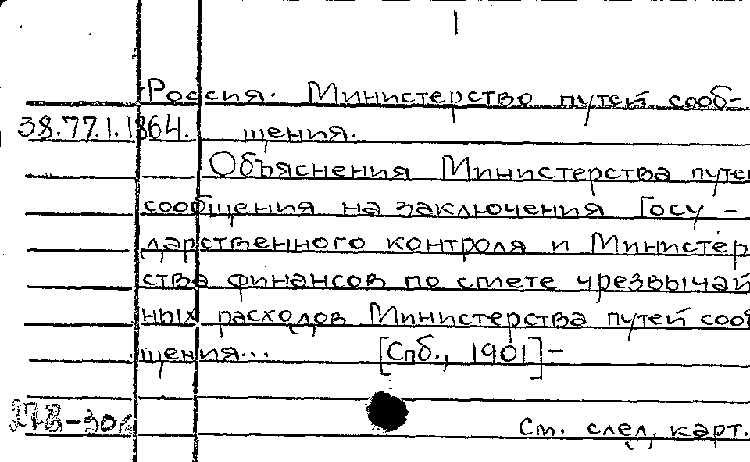 Россия. Министерство путей сооб-
38.77.1.1864. щения.
Объяснения Министерства путе
сообщения на заключения Госу-
дарственного контроля и Министер
ства финансов по смете чрезвычай
ных расходов Министерства путей сооб
щения... [Спб., 1901]-
См. след. карт.